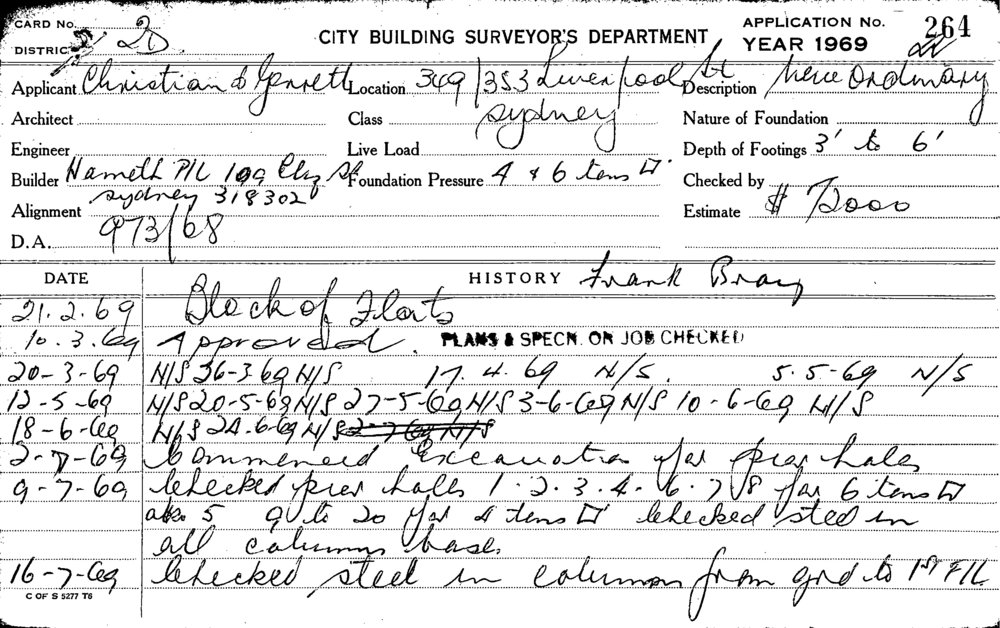 CARD No.
DISTRICT 2D
CITY BUILDING SURVEYOR'S DEPARTMENT
APPLICATION No. 264
YEAR 1969
Applicant Christian & Gerrett Location 349/353 Liverpool St Description New Ordinary
Architect Class Sydney Nature of Foundation
Engineer Live Load Depth of Footings 3' to 6'
Builder Hameth P/L 199 Eliz St Foundation Pressure 4 & 6 tons □' Checked by
Sydney 318302
Alignment Estimate $ 72000
D.A. 973/68
DATE HISTORY Frank Bray
21.2.69 Block of Flats
10.3.69 Approved. PLANS & SPECN. ON JOB CHECKED
20-3-69 N/S 26-3-69 N/S 17.4.69 N/S. 5.5-69 N/S
12-5-69 N/S 20-5-69 N/S 27-5-69 N/S 3-6-69 N/S 10-6-69 N/S
18-6-69 N/S 24.6-69 N/S 2-7-69 N/S
2-7-69 Commenced Excavation for pier holes
9-7-69 Checked pier holes 1.2.3.4.6.7.8 for 6 tons □'
also 5 9 to 20 for 4 tons □' Checked steel in
all column base.
16-7-69 Checked steel in column from grd to 1st F/L
C OF S 5277 T6